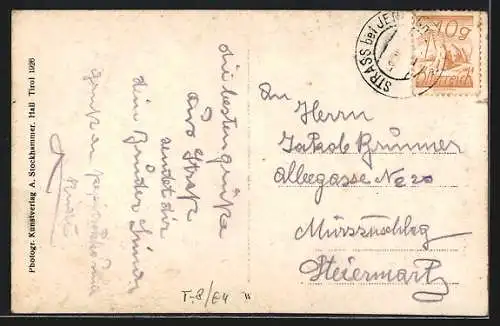 Photogr. Kunstverlag A. Stockhammer, Hall Tirol 1926
die besten grüße
aus Straß
sendet dir
dein Bruder
Gruß an
STRASS bei JENBACH
10g
An Herrn
Jakob Brunner
Alleegasse No 20
Mürzzuschlag
Steiermark
T-8/64